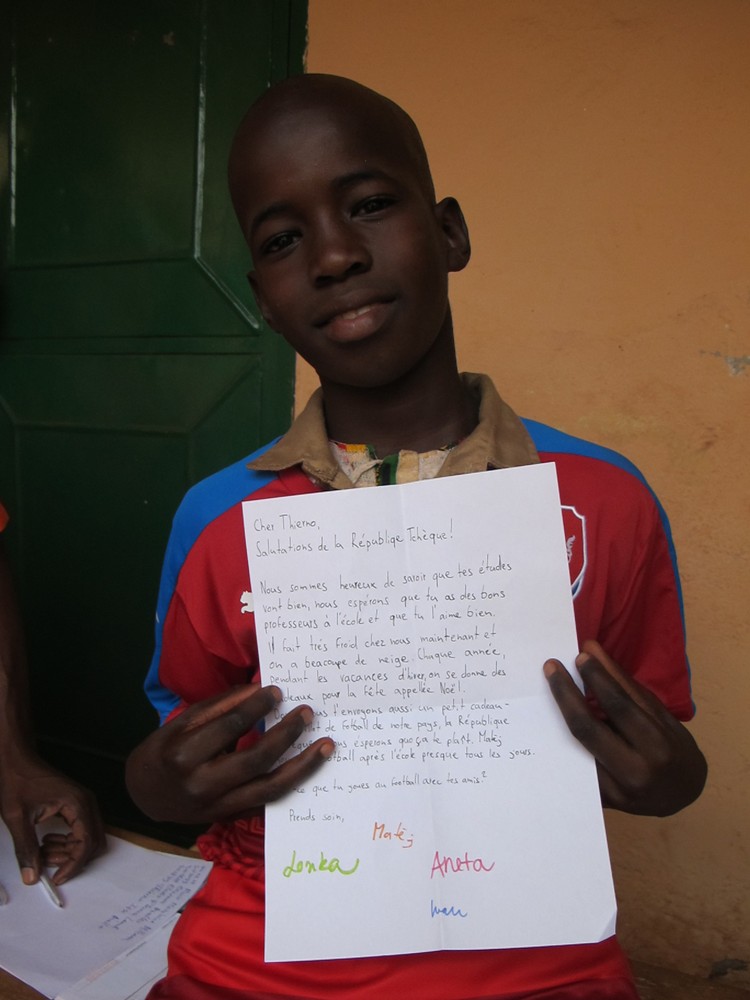 Cher Thierno,
Salutations de la Républiqe Tchèque!
Nous sommes heureux de savoir que tes études
vont bien, nous espérons que tu as des bons
professeurs à l'école et que tu l'aime bien.
Il fait très froid chez nous maintenant et
on a beacoupe de neige. Chaque année,
pendant les vacances d'hiver, on se donne des
cadeaux pour la fête appellée Noël.
nous t'envoyons aussi un petit cadeau-
de fotball de notre pays, la République
nous esperons que ça te plaît. Matěj
football après l'école presque tous les jours.
ce que tu joues au football avec tes amis?
Prends soin,
Matěj
Lenka
Aneta
Ivan